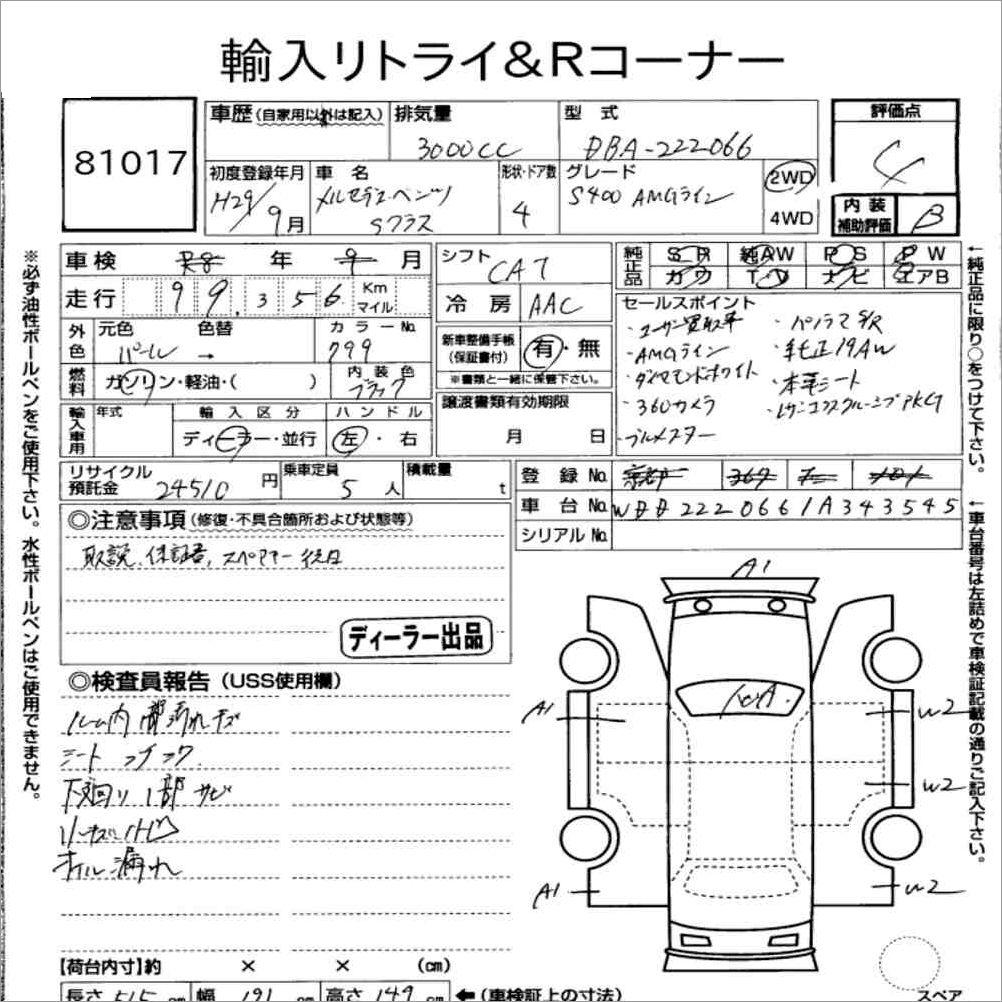 輸入リトライ&Rコーナー
81017
車歴(自家用以外は記入)
排気量
3000cc
型式
DBA-222066
評価点
4
初度登録年月
H29/9月
車名
メルセデスベンツ
Sクラス
形状・ドア数
4
グレード
S400 AMGライン
2WD
4WD
内装
補助評価
B
車検 R8年 9月
走行 99.356. Km
マイル
外色
元色
パール
色替
→
カラーNo.
799
燃料
ガソリン・軽油・( )
内装色
ブラック
輸入車用
年式
輸入区分
ディーラー・並行
ハンドル
左・右
シフト
CA7
冷房 AAC
新車整備手帳
(保証書付)
有・無
※書類と一緒に保管下さい。
譲渡書類有効期限
月 日
純正品
SR 純AW PS PW
カワ TV ナビ エアB
セールスポイント
・ユーザー買取車
・AMGライン
・ダイヤモンドホワイト
・360カメラ
・ブルメスター
・パノラマS/R
・純正19AW
・本革シート
・レザーエクスクルーシブPKG
リサイクル
預託金
24510円
乗車定員
5人
積載量
t
登録No. 京都 367
車台No. WDD2220661A343545
シリアルNo.
◎注意事項(修復・不具合箇所および状態等)
取説、保証書、スペアキー後日
ディーラー出品
◎検査員報告(USS使用欄)
ルーム内一部汚れキズ
シート
下廻り一部サビ
オイル漏れ
A1
A1
A1
W2
W2
W2
スペア
【荷台内寸】約 × × (cm)
長さ 515 cm 幅 191 cm 高さ 149 cm ←(車検証上の寸法)
※必ず油性ボールペンをご使用下さい。水性ボールペンはご使用できません。
←純正品に限り○をつけて下さい。
←車台番号は左詰めで車検証記載の通りご記入下さい。